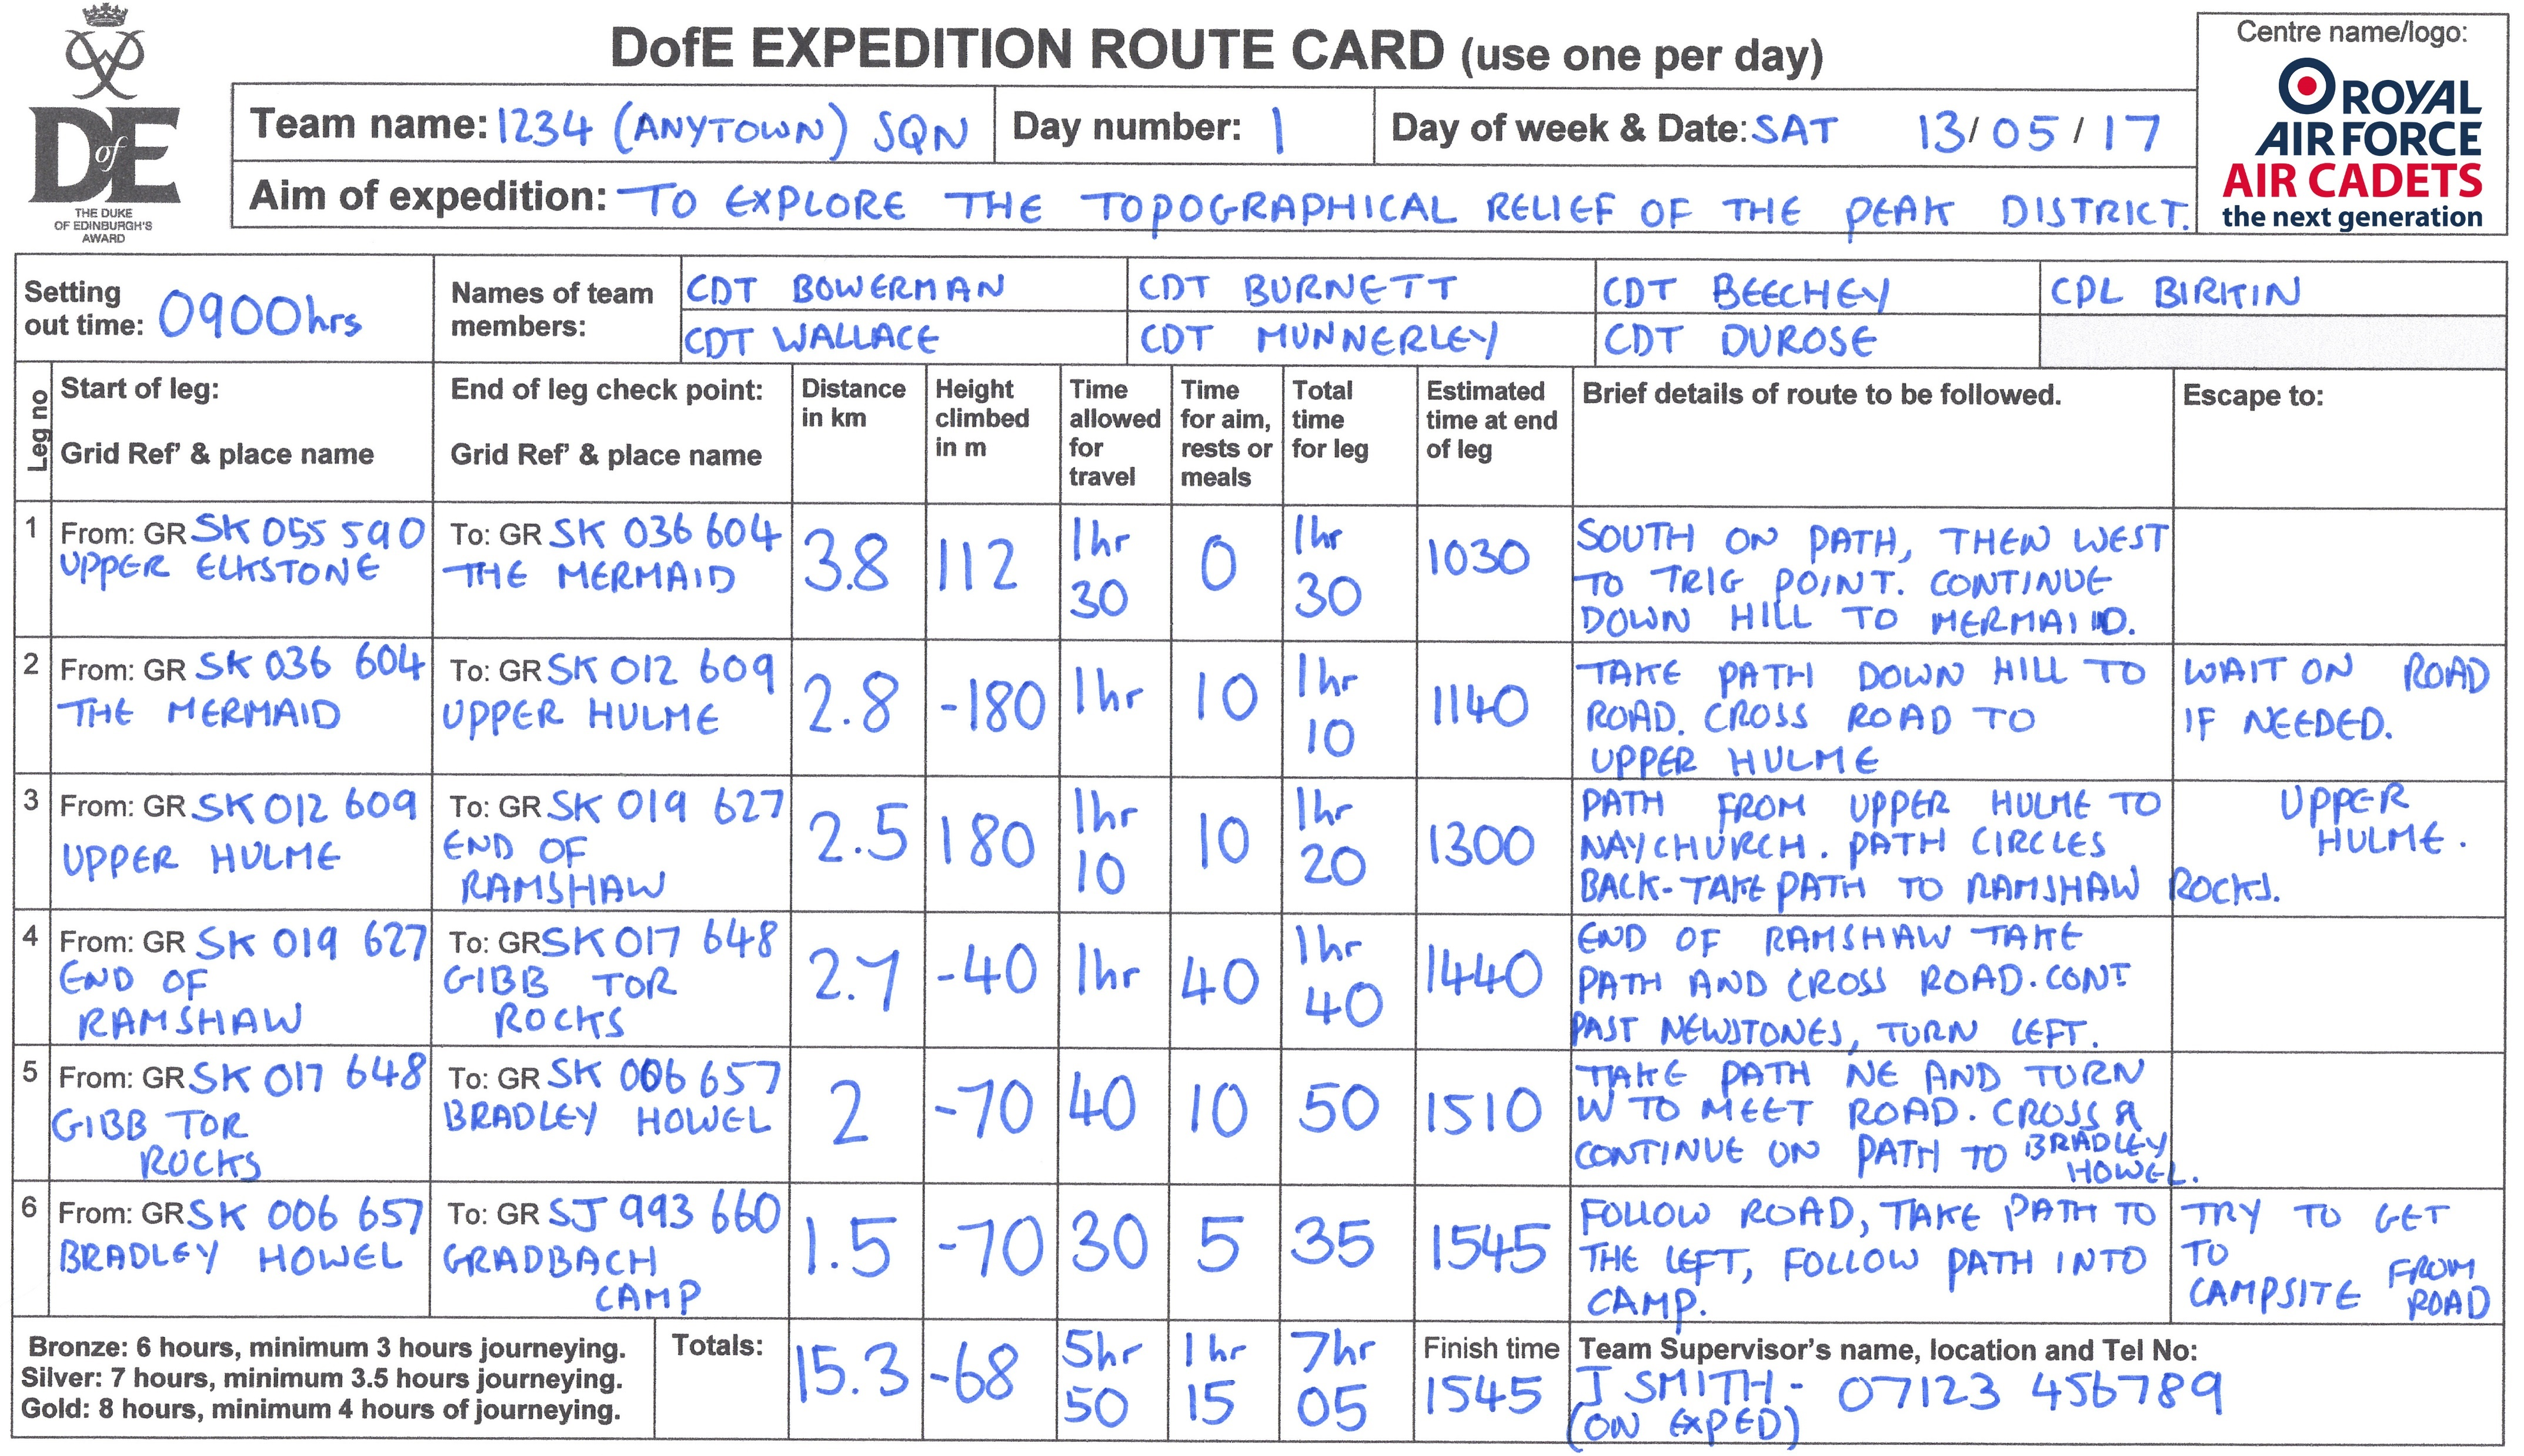 DofE EXPEDITION ROUTE CARD (use one per day)
Centre name/logo:
ROYAL
AIR FORCE
AIR CADETS
the next generation
DofE
THE DUKE
OF EDINBURGH'S
AWARD
Team name: 1234 (ANYTOWN) SQN
Day number: 1
Day of week & Date: SAT 13/05/17
Aim of expedition: TO EXPLORE THE TOPOGRAPHICAL RELIEF OF THE PEAK DISTRICT.
Setting
out time: 0900hrs
Names of team
members:
CDT BOWERMAN
CDT BURNETT
CDT BEECHEY
CPL BIRKIN
CDT WALLACE
CDT MUNNERLEY
CDT DUROSE
Leg no
Start of leg:
Grid Ref' & place name
End of leg check point:
Grid Ref' & place name
Distance
in km
Height
climbed
in m
Time
allowed
for
travel
Time
for aim,
rests or
meals
Total
time
for leg
Estimated
time at end
of leg
Brief details of route to be followed.
Escape to:
1
From: GR SK 055 590
UPPER ELKSTONE
To: GR SK 036 604
THE MERMAID
3.8
112
1hr
30
0
1hr
30
1030
SOUTH ON PATH, THEN WEST
TO TRIG POINT. CONTINUE
DOWN HILL TO MERMAID.
2
From: GR SK 036 604
THE MERMAID
To: GR SK 012 609
UPPER HULME
2.8
-180
1hr
10
1hr
10
1140
TAKE PATH DOWN HILL TO
ROAD. CROSS ROAD TO
UPPER HULME
WAIT ON ROAD
IF NEEDED.
3
From: GR SK 012 609
UPPER HULME
To: GR SK 019 627
END OF
RAMSHAW
2.5
180
1hr
10
10
1hr
20
1300
PATH FROM UPPER HULME TO
NAYCHURCH. PATH CIRCLES
BACK-TAKE PATH TO RAMSHAW ROCKS.
UPPER
HULME.
4
From: GR SK 019 627
END OF
RAMSHAW
To: GR SK 017 648
GIBB TOR
ROCKS
2.7
-40
1hr
40
1hr
40
1440
END OF RAMSHAW TAKE
PATH AND CROSS ROAD. CONT
PAST NEWSTONES, TURN LEFT.
5
From: GR SK 017 648
GIBB TOR
ROCKS
To: GR SK 006 657
BRADLEY HOWEL
2
-70
40
10
50
1510
TAKE PATH NE AND TURN
W TO MEET ROAD. CROSS &
CONTINUE ON PATH TO BRADLEY
HOWEL.
6
From: GR SK 006 657
BRADLEY HOWEL
To: GR SJ 993 660
GRADBACH
CAMP
1.5
-70
30
5
35
1545
FOLLOW ROAD, TAKE PATH TO
THE LEFT, FOLLOW PATH INTO
CAMP.
TRY TO GET
TO
CAMPSITE FROM
ROAD
Bronze: 6 hours, minimum 3 hours journeying.
Silver: 7 hours, minimum 3.5 hours journeying.
Gold: 8 hours, minimum 4 hours of journeying.
Totals:
15.3
-68
5hr
50
1hr
15
7hr
05
Finish time
1545
Team Supervisor's name, location and Tel No:
J SMITH - 07123 456789
(ON EXPED)